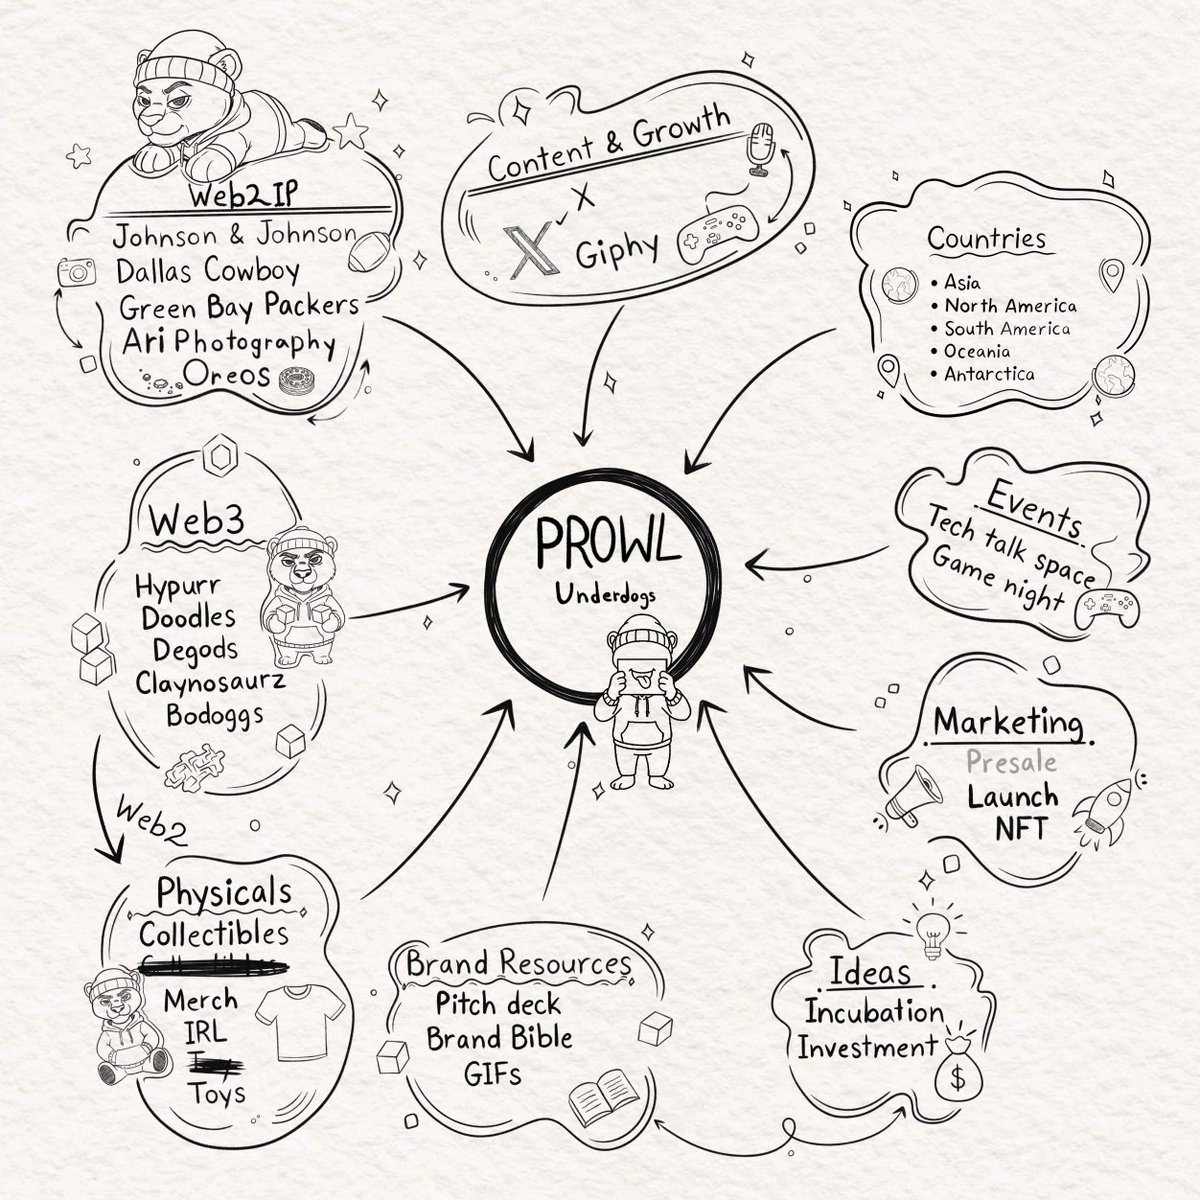 Web2 IP
Johnson & Johnson
Dallas Cowboy
Green Bay Packers
Ari Photography
Oreos
Content & Growth
X
X
Giphy
Countries
• Asia
• North America
• South America
• Oceania
• Antarctica
Web3
Hypurr
Doodles
Degods
Claynosaurz
Bodoggs
PROWL
Underdogs
Events
Tech talk space
Game night
Marketing
Presale
Launch
NFT
Web2
Physicals
Collectibles
Merch
IRL
Toys
Brand Resources
Pitch deck
Brand Bible
GIFs
Ideas
Incubation
Investment
$